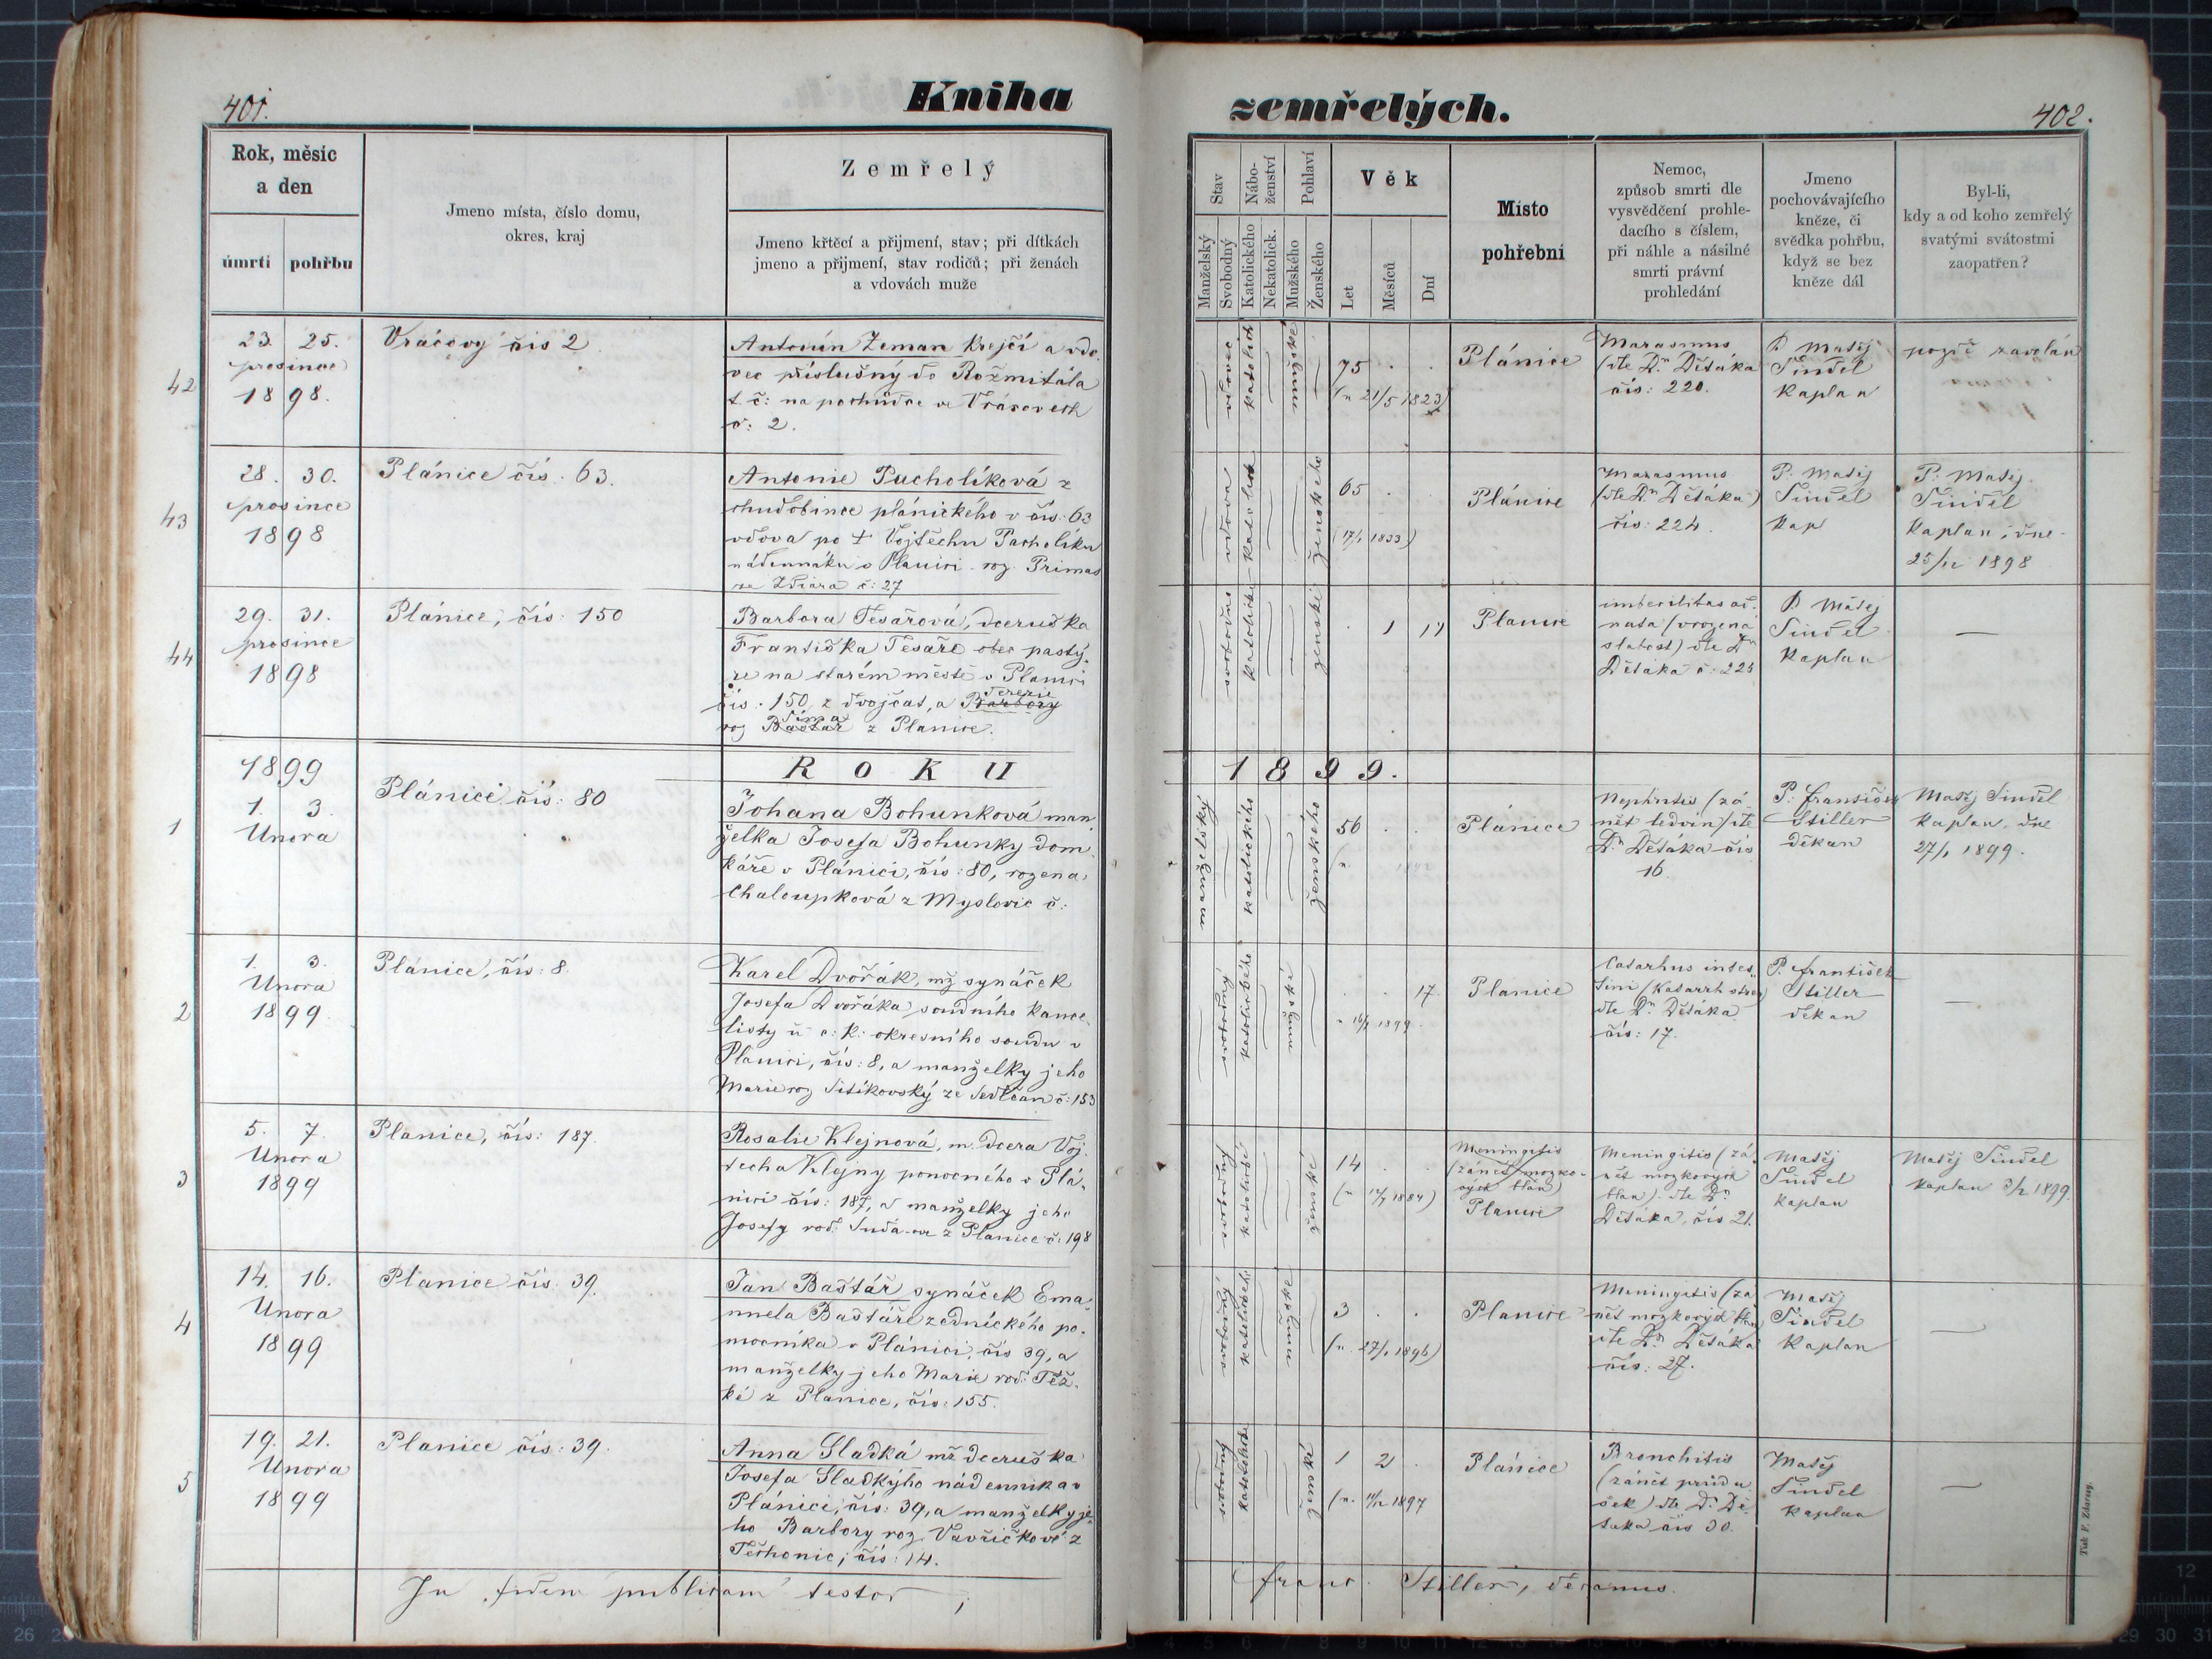 401.
Kniha
Rok, měsíc
a den
úmrtí
pohřbu
Jmeno místa, číslo domu,
okres, kraj
Zemřelý
Jmeno křtěcí a přijmení, stav; při dítkách
jmeno a přijmení, stav rodičů; při ženách
a vdovách muže
42
23. 25.
prosince
1898.
Vráčovy čís 2
Antonín Zeman Krejčí a vdo-
vec příslušný do Rožmitála
t. č: na pochůzce ve Vráčovech
č: 2.
43
28. 30.
prosince
1898
Plánice čís. 63.
Antonie Pucholíková z
chudobince plánického v čís: 63
vdova po † Vojtěchu Pucholíku
nádenníku v Plánici roz. Primas
ze Zdiara č: 27
44
29. 31.
prosince
1898
Plánice, čís: 150
Barbora Tesařová, dceruška
Františka Tesaře obec. pastý-
ře na starém městě v Plánici
čís: 150, z dvojčat, a Barbory Terezie
roz Baštář Šíma z Planice.
1899
ROKU
1
1. 3.
Února
Plánici čís: 80
Johana Bohunková man-
želka Josefa Bohunky dom-
káře v Plánici, čís: 80, rozena
Chaloupková z Myslovic č:
2
1. 3.
Února
1899
Plánice, čís: 8.
Karel Dvořák, mž synáček
Josefa Dvořáka soudního kance-
listy u c: k: okresního soudu v
Plánici, čís: 8, a manželky jeho
Marie roz Sitíkovský ze Sedlčan č: 153
3
5. 7.
Února
1899
Planice, čís: 187.
Rosalie Klejnová, m. dcera Voj-
těcha Klejny ponocného v Plá-
nici čís: 187, a manželky jeho
Josefy rod. z Planice č: 198
4
14. 16.
Února
1899
Planice čís. 39.
Jan Baštář synáček Ema-
nuela Baštáře zednického po-
mocníka v Plánici, čís 39, a
manželky jeho Marie rod: Těž-
ké z Planice, čís: 155.
5
19. 21.
Února
1899
Planice čís: 39.
Anna Sladká mž dceruška
Josefa Sladkýho nádenníka v
Plánici, čís: 39, a manželky je-
ho Barbory roz. Vavřičkové z
Těchonic, čís: 14.
In fidem publicam testor,
zemřelých.
402.
Stav
Manželský
Svobodný
Nábo-
ženství
Katolického
Nekatolick.
Pohlaví
Mužského
Ženského
Věk
Let
Měsíců
Dní
Místo
pohřební
Nemoc,
způsob smrti dle
vysvědčení prohle-
dacího s číslem,
při náhle a násilné
smrti právní
prohledání
Jmeno
pochovávajícího
kněze, či
svědka pohřbu,
když se bez
kněze dál
Byl-li,
kdy a od koho zemřelý
svatými svátostmi
zaopatřen?
vdovec
katolick
mužské
75
(n 21/5 1823)
Plánice
Marasmus
(dle Dra Dětáka
čís: 220.
P. Matěj
Šindel
Kaplan
pozdě zavolán
vdova
katolick
ženského
65
(17/1 1833)
Plánice
Marasmus
(dle Dra Dětáka)
čís: 224.
P. Matěj
Šindel
Kap
P: Matěj
Šindel
Kaplan; dne
25/12 1898
svobodné
katolické
ženské
1 17
Planice
imbecilitas ad-
nata (vrozená
slabost) dle Dra
Dětáka č: 225
P. Matěj
Šindel
Kaplan
1899.
manželský
katolického
ženského
56
(n
Plánice
Nephritis (zá-
nět ledvin) dle
Dra Dětáka čís
16.
P: František
Stiller
děkan
Matěj Šindel
Kaplan, dne
27/1 1899.
svobodný
katolického
mužské
17
n 16/1 1899.
Planice
Catarhus intes-
tini (Katarrh střev)
dle Dra Dětáka
čís: 17.
P. František
Stiller
děkan
svobodný
katolické
ženské
14
(n 17/7 1884)
Meningitis
(zánět mozko-
vých blan)
Planice
Meningitis (zá-
nět mozkových
blan) dle Dr
Dětáka, čís 21.
Matěj
Šindel
Kaplan
Matěj Šindel
Kaplan 3/2 1899.
svobodný
katolické
mužské
3
(n. 27/1 1896)
Planice
Meningitis (zá-
nět mozkových blan
dle Dra Dětáka
čís. 27.
Matěj
Šindel
Kaplan
svobodný
katolick
ženské
1 2
(n. 11/12 1897
Plánice
Bronchitis
(zánět průdu-
šek) dle Dr Dě-
táka čís 30.
Matěj
Šindel
Kaplan
Franc. Stiller, decanus.
Tisk F. Zdarsy.